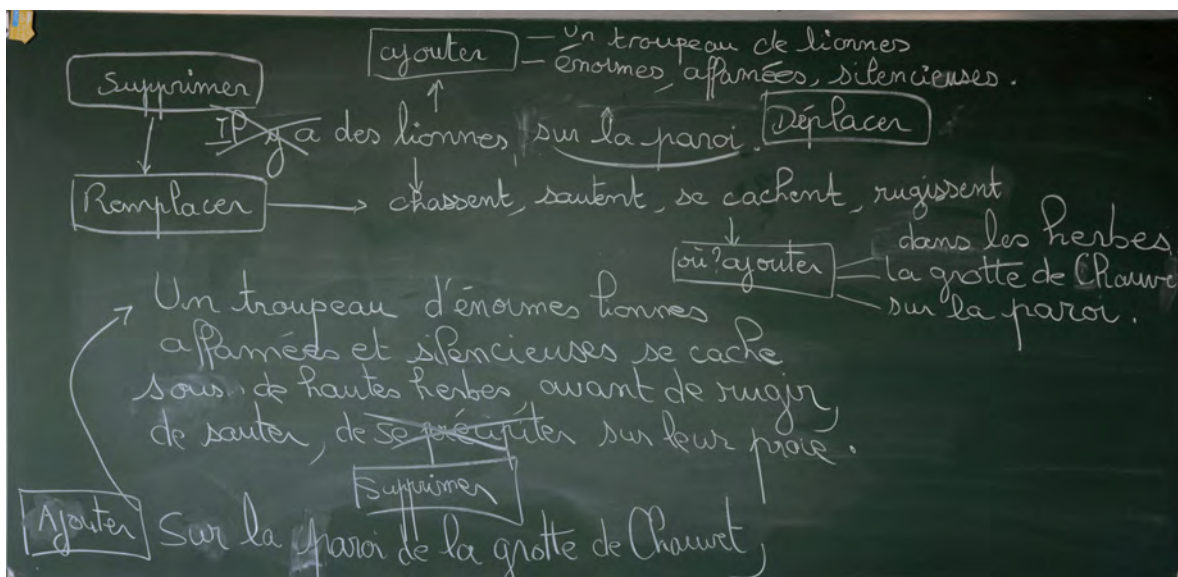 ajouter
– un troupeau de lionnes
– énormes, affamées, silencieuses.
Supprimer
Il y a des lionnes sur la paroi.
Déplacer
Remplacer
chassent, sautent, se cachent, rugissent
où? ajouter
dans les herbes
la grotte de Chauve
sur la paroi.
Un troupeau d'énormes lionnes
affamées et silencieuses se cache
sous de hautes herbes avant de rugir,
de sauter, de se précipiter sur leur proie.
Supprimer
Ajouter
Sur la paroi de la grotte de Chauvet,